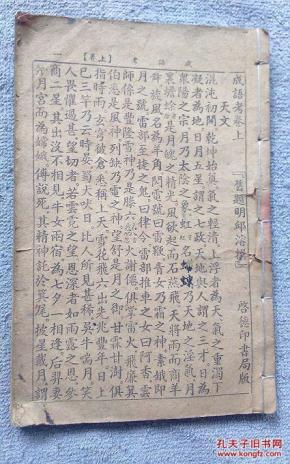 成語考【上卷】一
成語考卷上 〔舊題明邱濬撰〕
天文 啓德印書局版
混沌初開乾坤始奠氣之輕清上浮者為天氣之重濁下
凝者為地日月五星謂之七政天地與人謂之三才日為
眾陽之宗月乃太陰之象虹名螮蝀乃天地之淫氣月
裏蟾蜍是月魄之精光風欲起而石燕飛天將雨而商羊
舞旋風名為羊角閃電號曰雷鞭青女乃霜之神素娥即
月之號雷部至捷之鬼曰律令雷部推車之女曰阿香雲
師係是豐隆雪神乃是滕六火謝僊俱掌雷火飛廉箕
伯悉是風神列缺乃電之神望舒是月之御甘霖甘澍俱
指時雨玄穹彼蒼悉稱上天雪花飛六出先兆豐年日上
已三竿乃云時晏蜀犬吠日比人所見甚稀吳牛喘月笑
人畏懼過甚望切者若雲霓之望恩深者如雨露之恩參
商二星其出沒不相見牛女兩宿為七夕一相逢后羿妻
奔月宮而為嫦娥傅說死其精神託於箕尾披星戴月謂
孔夫子旧书网